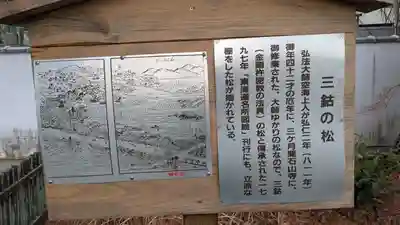 三鈷の松
弘法大師空海上人が弘仁二年（八一一年）
御年四十二才の厄年に、三ケ月間石山寺に、
御修業された、大師ゆかりの松なので、三鈷
（金剛杵密教の法具）の松と伝承された一七
九七年「東海道名所図絵」刊行にも、立派な
棚をした松が描かれている。